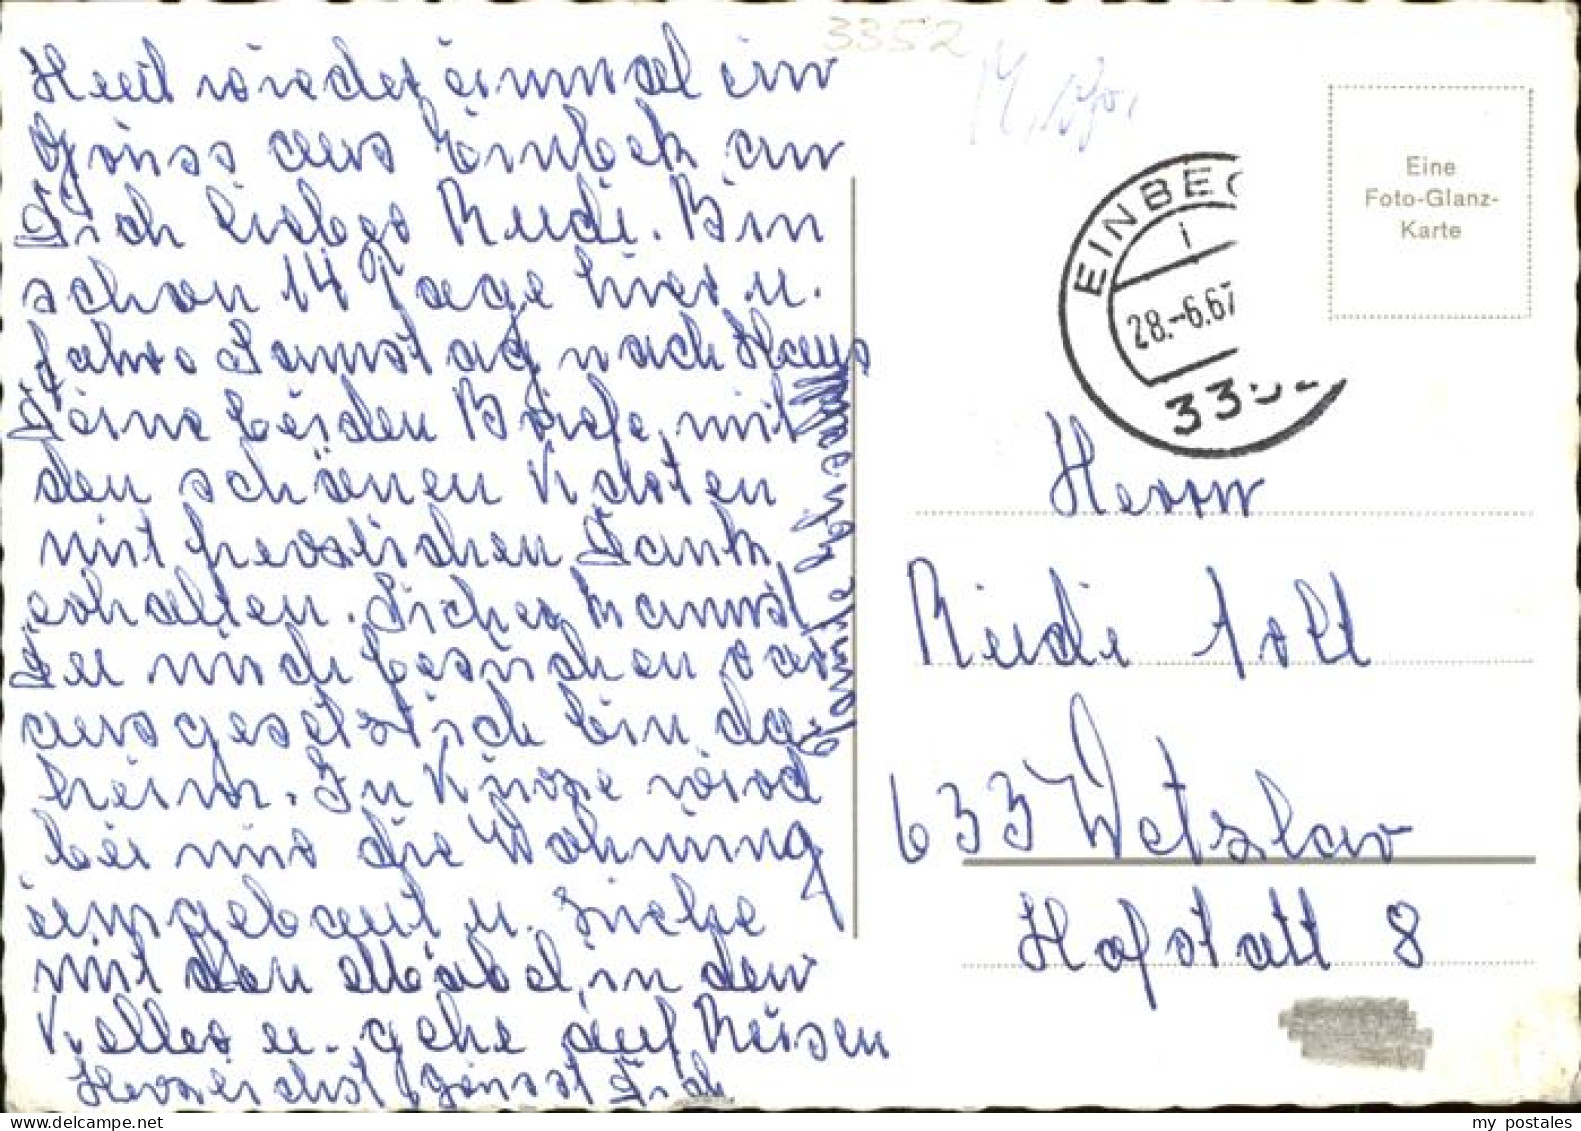 3352
Heut wieder einmal ein
Gruss aus Einbeck an
Dich liebes Rudi. Bin
schon 14 Tage hier u.
fahre Samstag nach Haus
Deine beiden Briefe mit
den schönen Karten
mit herzlichen Dank
erhalten. Sicher kannst
Du mich besuchen
ausgesetzt ich bin da-
heim. In Kürze wird
bei mir die Wohnung
umgebaut u. ziehe
mit den Möbel in den
Keller u. gehe auf Reisen
Herzlichst grüsst Dich
EINBEC
28.-6.67
33
Eine
Foto-Glanz-
Karte
Herrn
Rudi
633 Wetzlar
Hofstatt 8
my postales